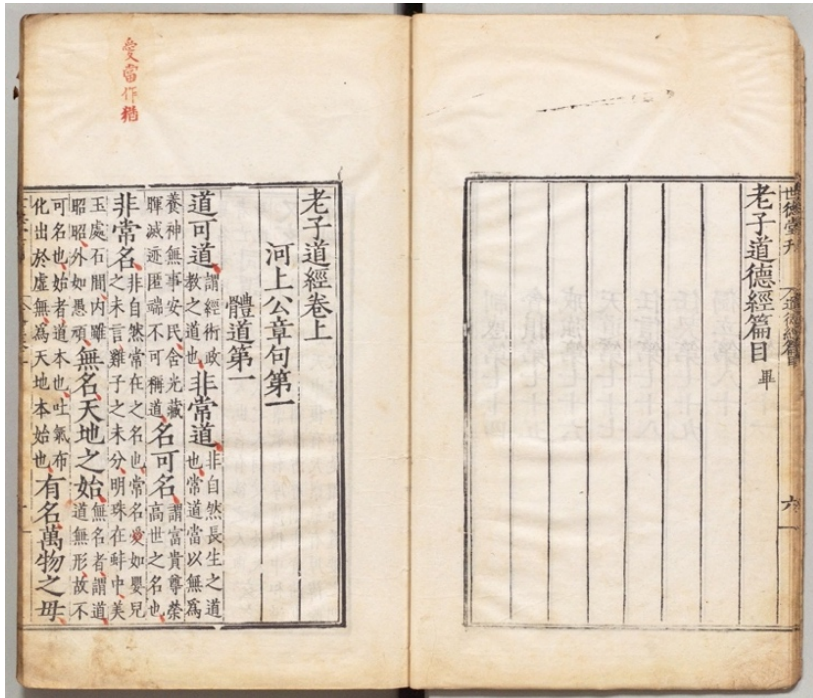 世德堂刊
道德經篇目
六
老子道德經篇目畢
愛當作猶
老子道經卷上
河上公章句第一
體道第一
道可道謂經術政教之道也非常道非自然長生之道也常道當以無爲
養神無事安民含光藏暉滅迹匿端不可稱道名可名謂富貴尊榮高世之名也
非常名非自然常在之名也常名愛如嬰兒之未言雞子之未分明珠在蚌中美
玉處石間内雖昭昭外如愚頑無名天地之始無名者謂道道無形故不
可名也始者道本也吐氣布化出於虛無爲天地本始也有名萬物之母